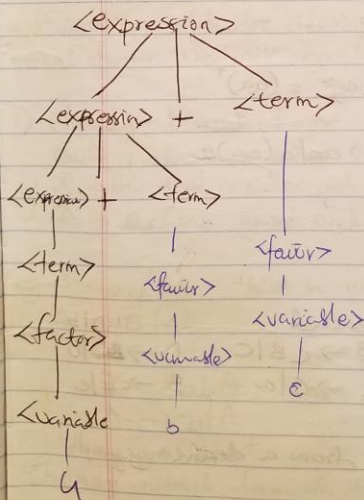 <expression>
<expressin> + <term>
<expression> + <term>
<term> <factor>
<factor> <variable>
<factor> <variable>
<variable c
b
a